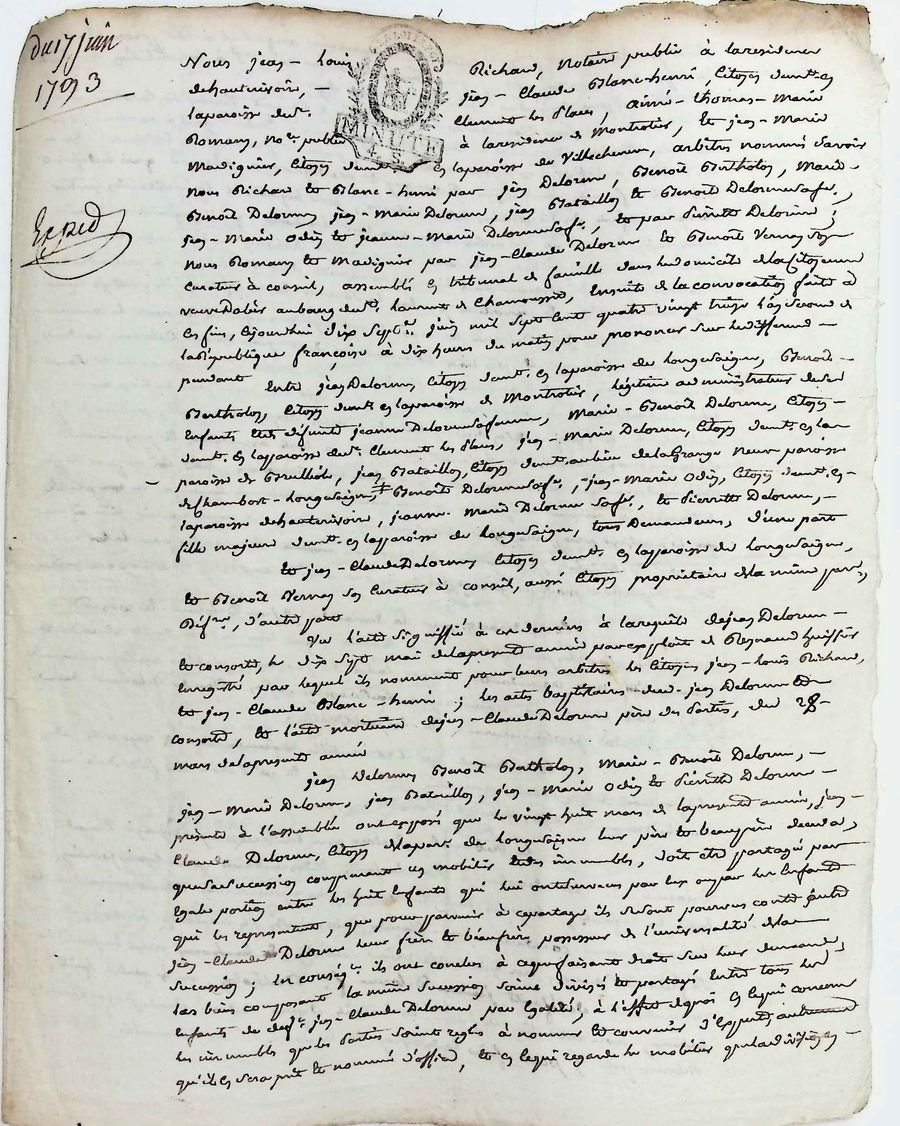 du 17 juin
1793
Exped
MINUTE
4. S.
Nous jean - louis Richard, Notaire publie à la residence
de hauterivoire, - jean - Claude Blanc-henri, Citoyen demt. en
la paroisse de st. Clement les places, aimé - thomas - Marie
Romany, nore. public à la residence de Montrotier, et jean - Marie
Madignier, Citoyen demt. en la paroisse de Villechenеve, arbitres nommés savoir
nous Richard et Blanc - henri par jean Delorme, Benoît Bertholon, Marie -
Benoît Delorme, jean - Marie Delorme, jean Bataillon et Benoît Delorme sa fe.,
jean - Marie Odin et jeanne - Marie Delorme sa fe., et par Pierrette Delorme ;
nous Romany et Madignier par jean - Claude Delorme et Benoît Vernay son
curateur à conseil, assemblés en tribunal de famille dans le domicile de la Citoyenne
veuve au bourg de st. laurent de Chamousset, ensuite de la convocation faite à
ces fins, cejourd'hui dix sept juin mil sept cent quatre vingt treize l'an second de
la République françoise à dix heures du matin pour prononcer sur le different -
pendant entre jean Delorme Citoyen demt. en la paroisse de longessaigne, Benoît -
Bertholon, Citoyen demt. en la paroisse de Montrotier, légitime administrateur de ses
enfants et de défunte jeanne Delorme sa femme, Marie - Benoît Delorme, Citoyen -
demt. en la paroisse de st. Clement les places, jean - Marie Delorme, Citoyen demt. en la
paroisse de Brulliole, jean Bataillon, Citoyen demt. au lieu de la Grange neuve paroisse
de Chambost - longessaigne, Benoîte Delorme sa fe., jean - Marie Odin, Citoyen demt. en -
la paroisse de hauterivoire, jeanne - Marie Delorme sa fe., et Pierrette Delorme, -
fille majeure demt. en la paroisse de longessaigne, tous Demandeurs, d'une part
et jean - Claude Delorme Citoyen demt. en la paroisse de longessaigne,
et Benoît Vernay son curateur à conseil, aussi Citoyen propriétaire de la même par.,
Défrs., d'autre part
Vu l'acte signiffié à ces derniers à la requête de jean Delorme -
et consorts, le dix sept mai de la presente année par exploit de Regnaud huissier
enregistré, par lequel ils nomment pour leurs arbitres les Citoyens jean - louis Richard,
et jean - Claude Blanc - henri ; les actes baptistaires desd. jean Delorme et
consorts, et l'acte mortuaire de jean - Claude Delorme père des parties, du 28 -
mars de la presente année
jean Delorme, Benoît Bertholon, Marie - Benoît Delorme, -
jean - Marie Delorme, jean Bataillon, jean - Marie Odin et Pierrette Delorme -
présents à l'assemblée ont exposés que le vingt huit mars de la presente année, jean -
Claude Delorme, Citoyen de la par. de longessaigne leur père et beaupère deceda,
que sa succession comprenant ces mobilier et des immeubles, doit être partagée par
egale portion entre les huit enfants qui lui ont survecus par eux ou par les enfants
qui les representent, que pour parvenir à ce partage ils seront pourvus contre
jean - Claude Delorme leur frère et beaufrère, possesseur de l'universalité de la
succession ; en conséqce. ils ont conclus à ce que faisant droit sur leur demande,
les biens composant la même succession soient divisés et partagés entre tous les
enfants de def. jean - Claude Delorme par egalité, à l'effet de quoi en ce qui concerne
les immeubles que les parties soient reglés à nommer et convenir d'Experts, autrement
qu'il en sera pris et nommé d'office, et en ce qui regarde le mobilier que la division -